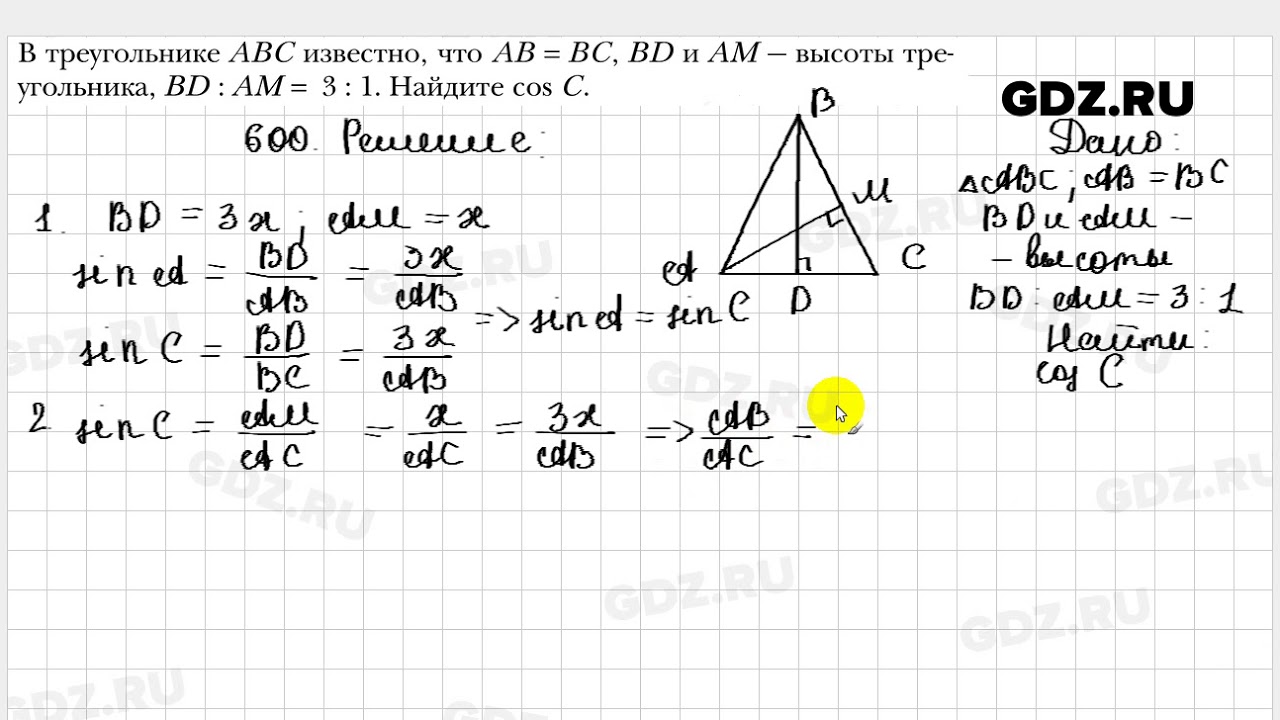 В треугольнике ABC известно, что AB = BC, BD и AM — высоты тре-
угольника, BD : AM = 3 : 1. Найдите cos C.
GDZ.RU
600. Решение:
1. BD = 3x ; AM = x
sin A = BD/AB = 3x/AB
sin C = BD/BC = 3x/AB
=> sin A = sin C
2 sin C = AM/AC = x/AC = 3x/AB => AB/AC =
B
M
A
D
C
Дано:
△ABC ; AB = BC
BD и AM –
– высоты
BD : AM = 3 : 1
Найти:
cos C
GDZ.RU
GDZ.RU
GDZ.RU
GDZ.RU
GDZ.RU
GDZ.RU
GDZ.RU
GDZ.RU
GDZ.RU